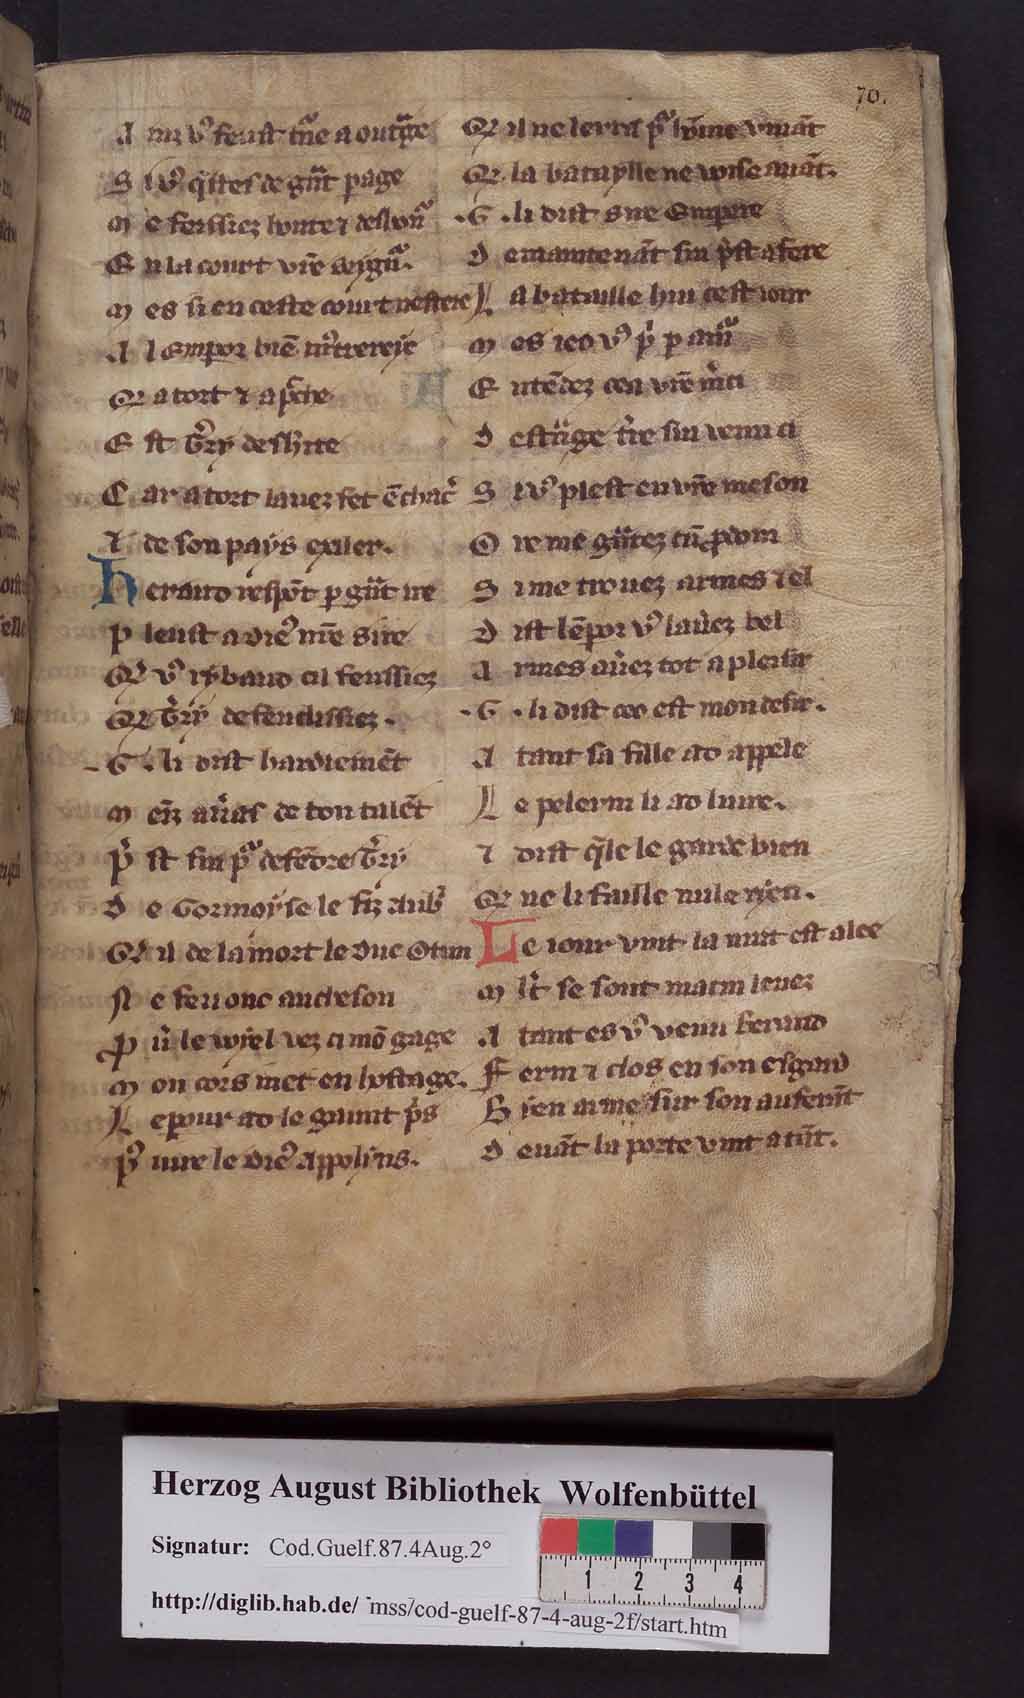 70.
A mz vꝰ feust tᵃne a outᵃge
S i vꝰ qͥstes de gᵃnt page
M e feissiez honte ⁊ deshonᵃ
E n la court vr̄e seygnᵃ.
M es si en ceste court
A l empor biē mͦtrereie
Q̄ a tort ⁊ a pͤche
E st Gͥri de
C ar a tort lauez fet ēchacͤ
⁊ de son pays exiler.
H eraud respōt p gᵃnt ire
P leust a dieͧ nr̄e sire
Q̄ vꝰ rybaud cil feussiez
Q̄ Gͥry defendissiez.
.G. li dist hardiemēt
M eīz auͤas de ton talēt
Pͤ st sui pᵃ defēdre Gͥri
D e Gormoyse le fiz Aubͥ
Q̄ il de la mort le duc Otun
N e feu onc acheson
P uͤ le wiel vez ci mō gage
M on cors met en hostage.
L epour ad le gaunt pͥs
Pͥ iure le dieͧ Appolyns.
Q̄ il ne lerra pᵃ hōme viuāt
Q̄ la bataylle ne voise auāt.
.G. li dist sire Empere
D emaintenāt sui pͤst a fere
L a bataille hui cest iour
M es ieo vꝰ pͥ p amᵃ
E ntēdez cea vr̄e mͤci
D estᵃnge tͤre sui venu ci
S i vꝰ plest en vr̄e meson
O re me gᵃntez cū pdom
S i me trouez armes ⁊ el
D ist lēpor vꝰ lauͤez bel
A rmes auͤez tot a pleisir
.G. li dist ceo est mon desir.
A tant sa fille ad appele
L e pelerin li ad liure.
⁊ dist qͤle le garde bien
Q̄ ne li faille nule ryen.
L e iour vint la nuit est alee
M lͭ se sont matin leuez
A tant es vꝰ venu heraud
F erm ⁊ clos en son esgard
B ien arme sur son auferāt
D euāt la porte vint atāt.
Herzog August Bibliothek Wolfenbüttel
Signatur: Cod.Guelf.87.4Aug.2°
1 2 3 4
http://diglib.hab.de/ mss/cod-guelf-87-4-aug-2f/start.htm